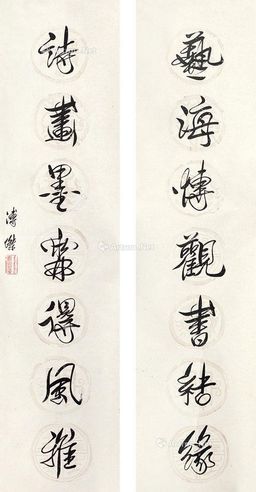 藝海愽觀書結緣
詩畫墨得風雅
溥傑
Artron.Net